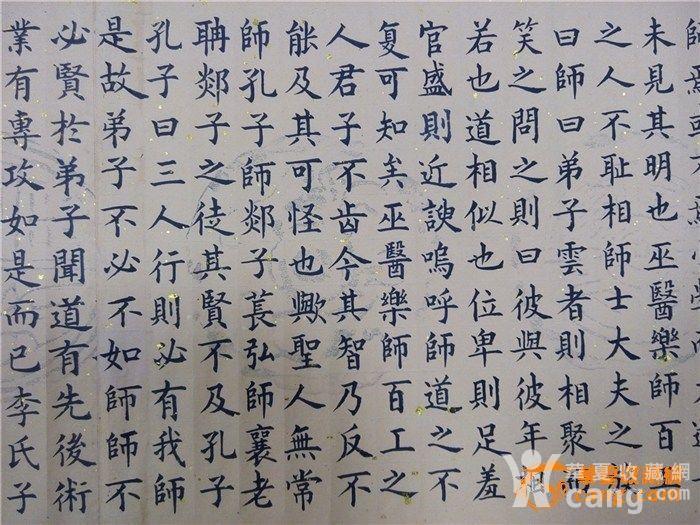 未見其明也巫醫樂師百
之人不耻相師士大夫之
曰師曰弟子雲者則相聚而
笑之問之則曰彼與彼年相
若也道相似也位卑則足羞
官盛則近諛嗚呼師道之不
复可知矣巫醫樂師百工之
人君子不齒今其智乃反不
能及其可怪也歟聖人無常
師孔子師郯子萇弘師襄老
聃郯子之徒其賢不及孔子
孔子曰三人行則必有我師
是故弟子不必不如師師不
必賢於弟子聞道有先後術
業有專攻如是而已李氏子
華夏收藏網
cang.com